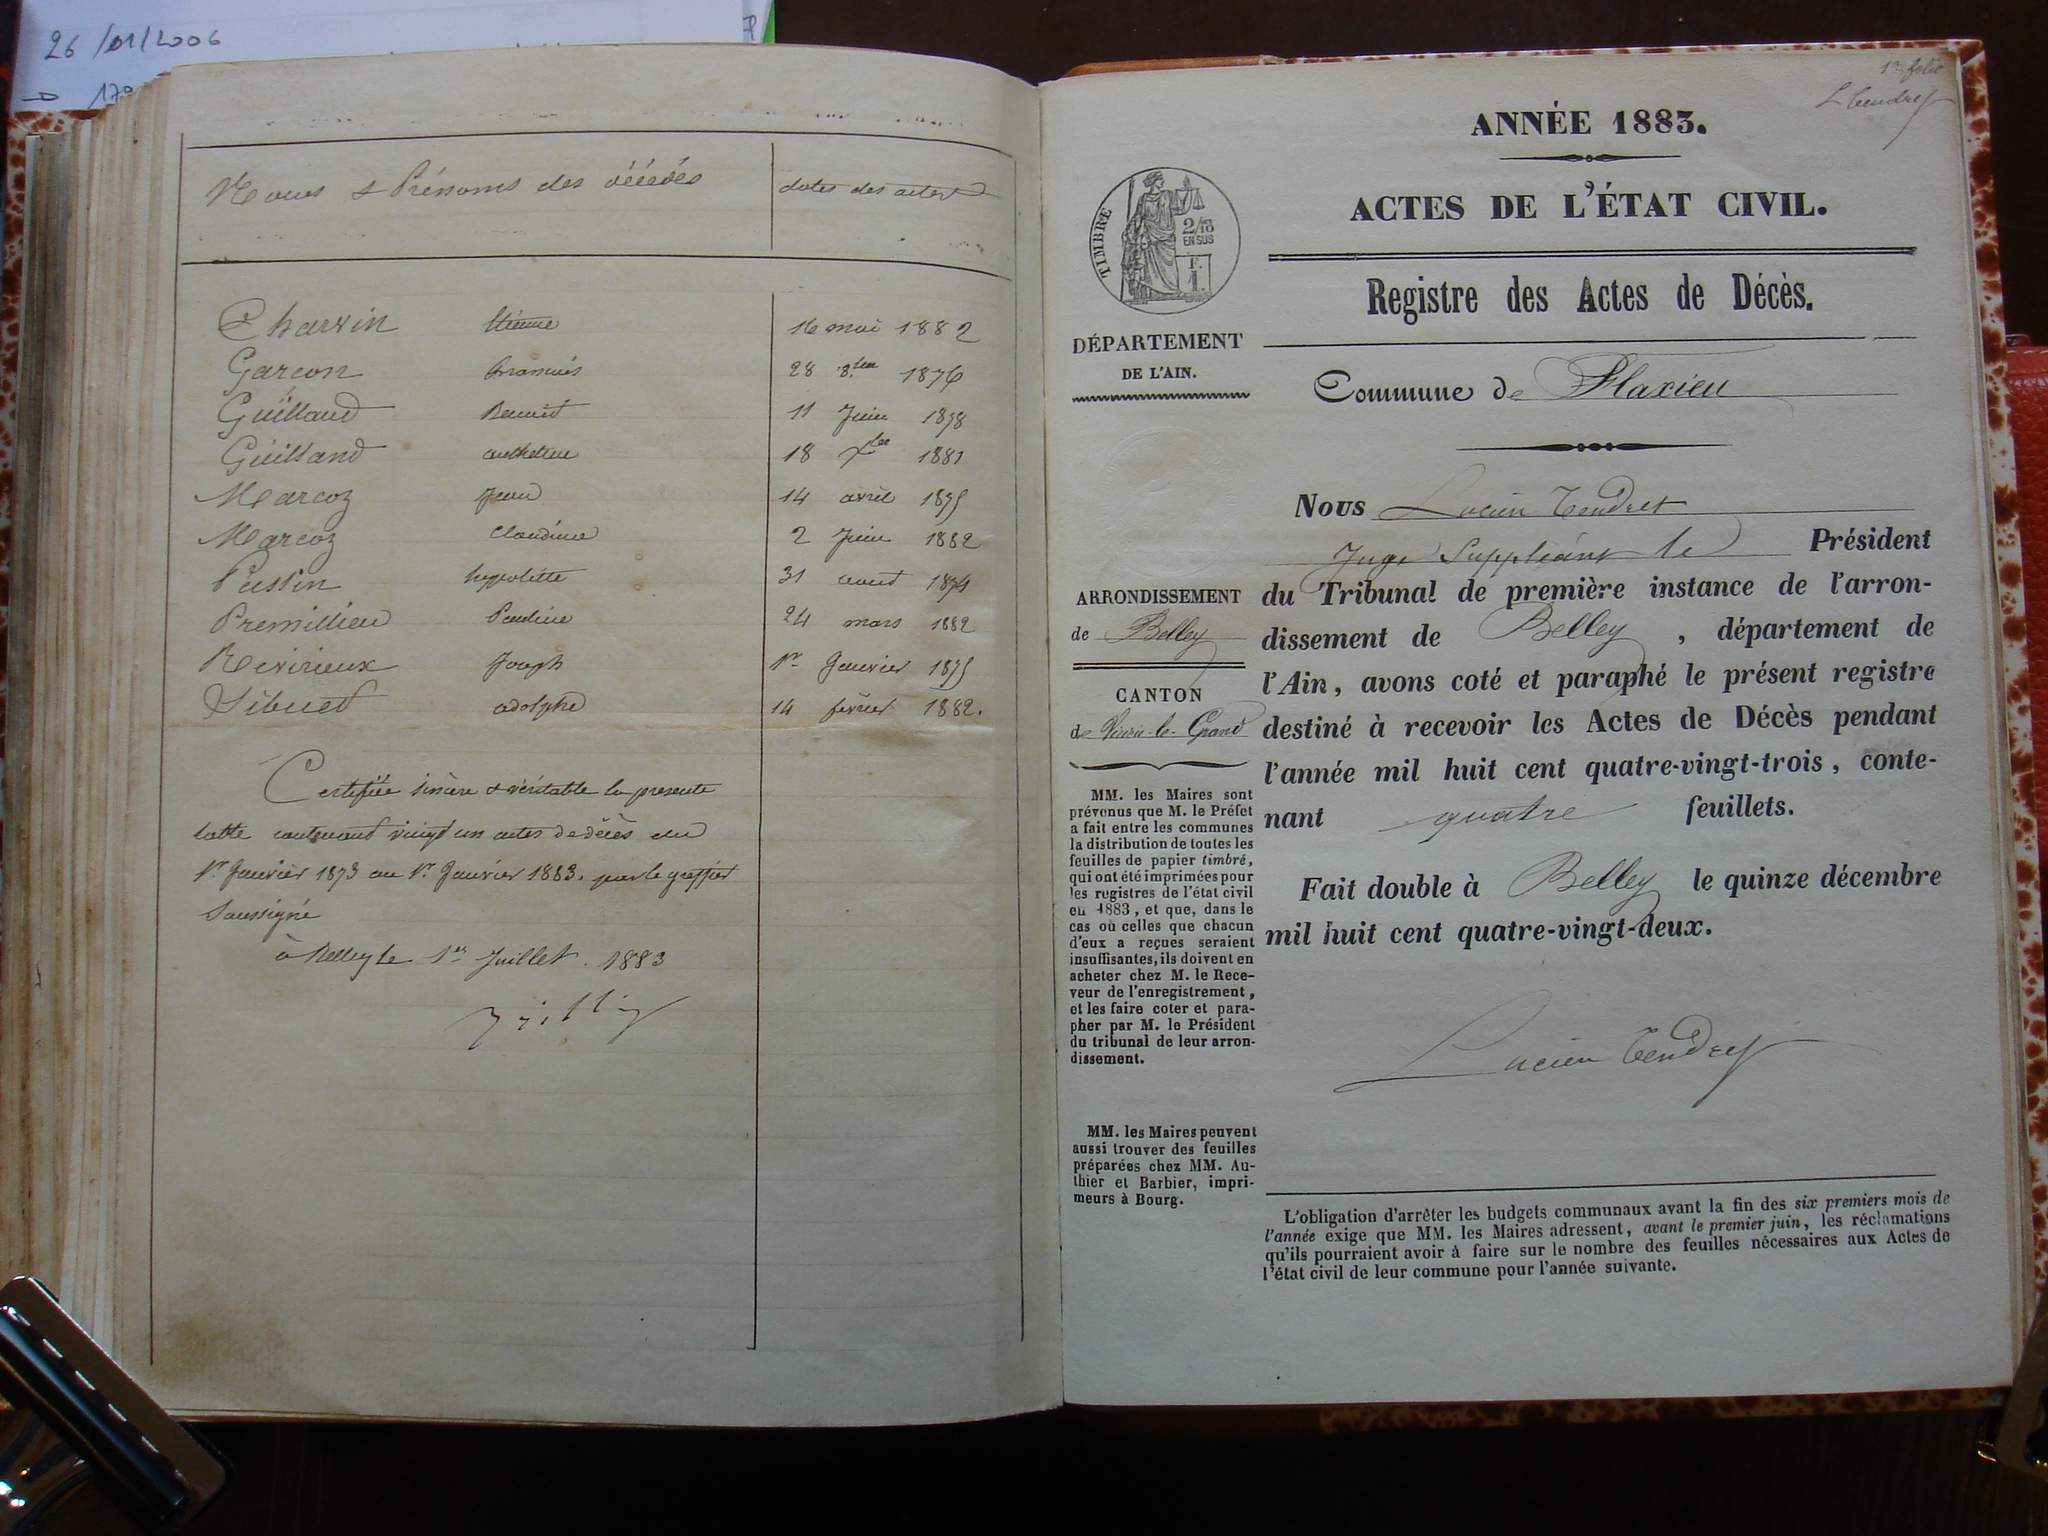 26/01/2006
Noms & Prénoms des décédés dates des actes
Charvin Etienne 16 mai 1882
Garçon 28 8.bre 1876
Guilland Benoit 11 Juin 1878
Guilland anthelme 18 Xbre 1881
Marcoz Jean 14 avril 1875
Marcoz Claudine 2 Juin 1882
Pussin hypolitte 31 aout 1874
Premillieu Pauline 24 mars 1882
Revirieux Joseph 1er Janvier 1875
Sibuet adolphe 14 février 1882.
Certifiée sincère & véritable la presente
table contenant vingt un actes de décès du
1er Janvier 1873 au 1er Janvier 1883, par le greffier
Soussigné
à Belley le 1er Juillet 1883
1er folio
L Tendret
ANNÉE 1883.
ACTES DE L'ÉTAT CIVIL.
Registre des Actes de Décès.
TIMBRE
2/10
EN SUS
F.
1.
DÉPARTEMENT
DE L'AIN.
Commune de Flaxieu
Nous Lucien Tendret
Juge Suppléant le Président
du Tribunal de première instance de l'arron-
dissement de Belley, département de
l'Ain, avons coté et paraphé le présent registre
destiné à recevoir les Actes de Décès pendant
l'année mil huit cent quatre-vingt-trois, conte-
nant quatre feuillets.
Fait double à Belley le quinze décembre
mil huit cent quatre-vingt-deux.
Lucien Tendret
ARRONDISSEMENT
de Belley
CANTON
de Virieu-le-Grand
MM. les Maires sont
prévenus que M. le Préfet
a fait entre les communes
la distribution de toutes les
feuilles de papier timbré,
qui ont été imprimées pour
les registres de l'état civil
en 1883, et que, dans le
cas où celles que chacun
d'eux a reçues seraient
insuffisantes, ils doivent en
acheter chez M. le Rece-
veur de l'enregistrement,
et les faire coter et para-
pher par M. le Président
du tribunal de leur arron-
dissement.
MM. les Maires peuvent
aussi trouver des feuilles
préparées chez MM. Au-
thier et Barbier, impri-
meurs à Bourg.
L'obligation d'arrêter les budgets communaux avant la fin des six premiers mois de
l'année exige que MM. les Maires adressent, avant le premier juin, les réclamations
qu'ils pourraient avoir à faire sur le nombre des feuilles nécessaires aux Actes de
l'état civil de leur commune pour l'année suivante.